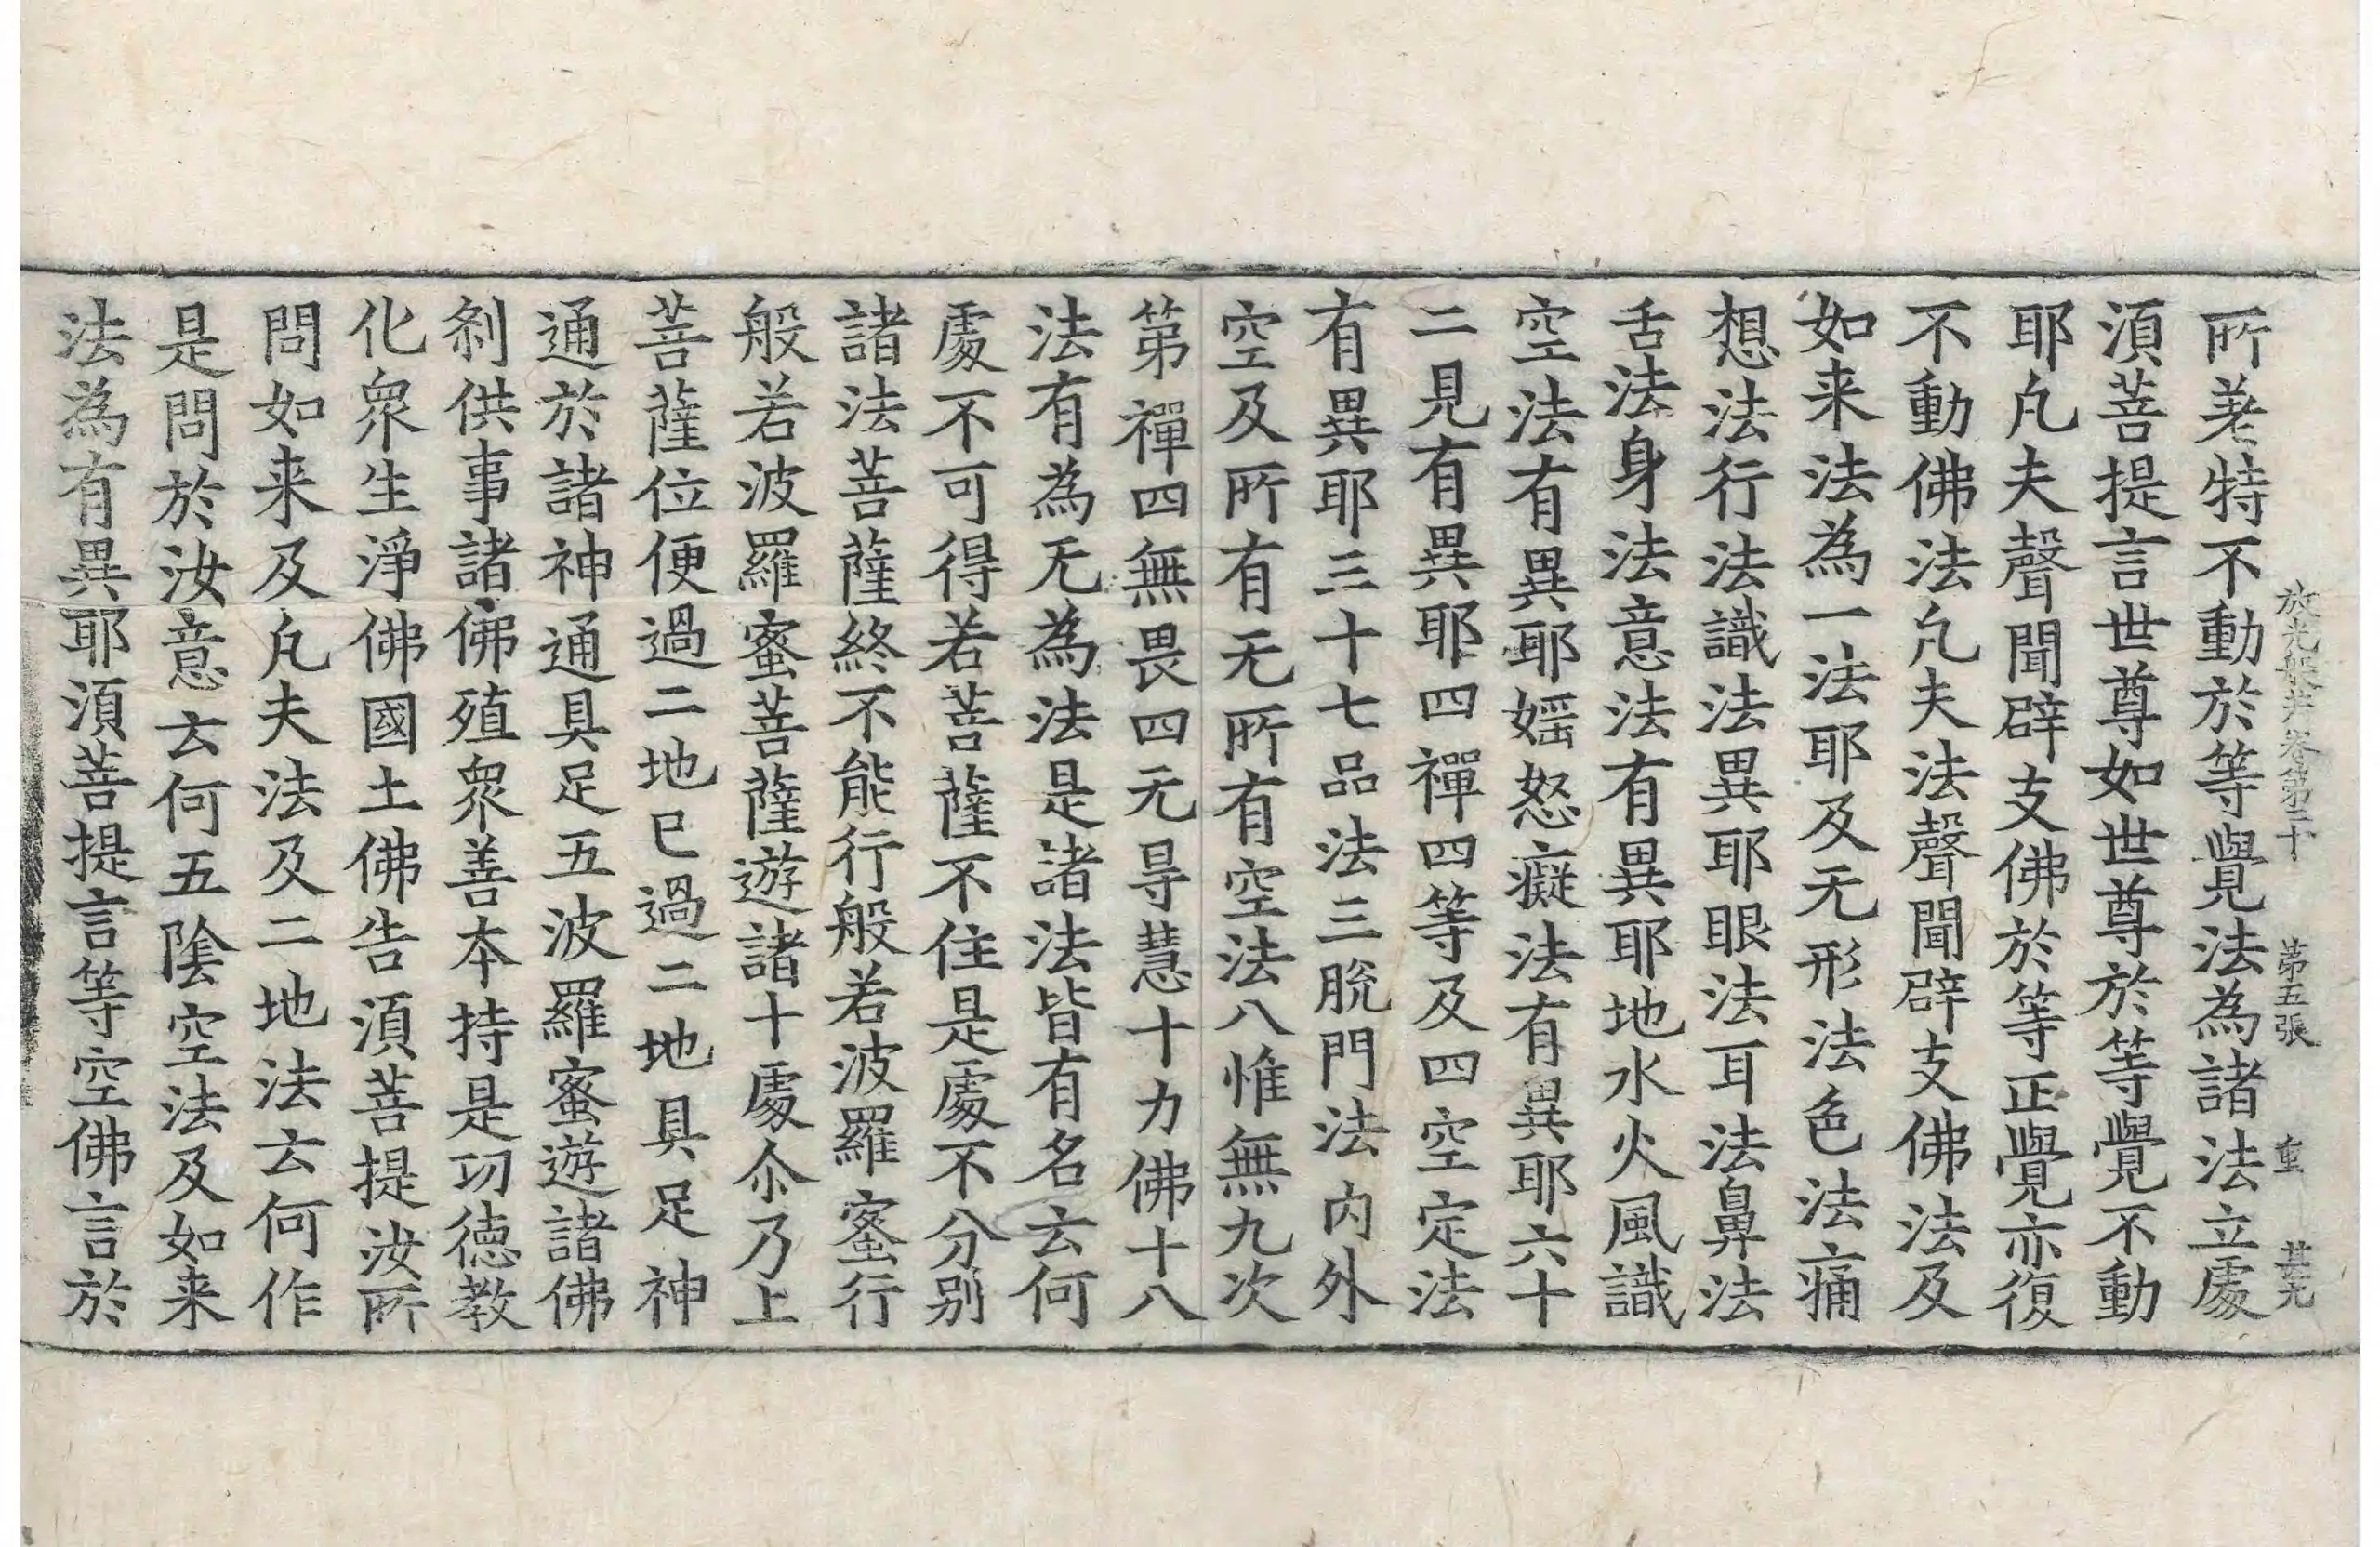 放光般若卷第二十 第五張 重
所著特不動於等覺法為諸法立處
須菩提言世尊如世尊於等覺不動
耶凢夫聲聞辟支佛於等正覺亦復
不動佛法凢夫法聲聞辟支佛法及
如来法為一法耶及无形法色法痛
想法行法識法異耶眼法耳法鼻法
舌法身法意法有異耶地水火風識
空法有異耶婬怒癡法有異耶六十
二見有異耶四禪四等及四空定法
有異耶三十七品法三脫門法内外
空及所有无所有空法八惟無九次
第禪四無畏四无㝵慧十力佛十八
法有為无為法是諸法皆有名云何
處不可得若菩薩不住是處不分别
諸法菩薩終不能行般若波羅蜜行
般若波羅蜜菩薩遊諸十處尒乃上
菩薩位便過二地已過二地具足神
通於諸神通具足五波羅蜜遊諸佛
刹供事諸佛殖衆善本持是功徳教
化衆生淨佛國土佛告須菩提汝所
問如来及凢夫法及二地法云何作
是問於汝意云何五陰空法及如来
法為有異耶須菩提言等空佛言於